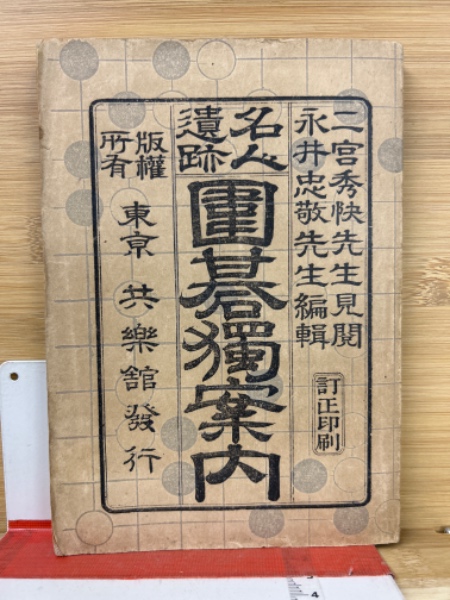 二宮秀快先生見閲
永井忠敬先生編輯
訂正印刷
名人
遺跡
圍碁獨案内
版權
所有
東京 共樂舘發行
3
4